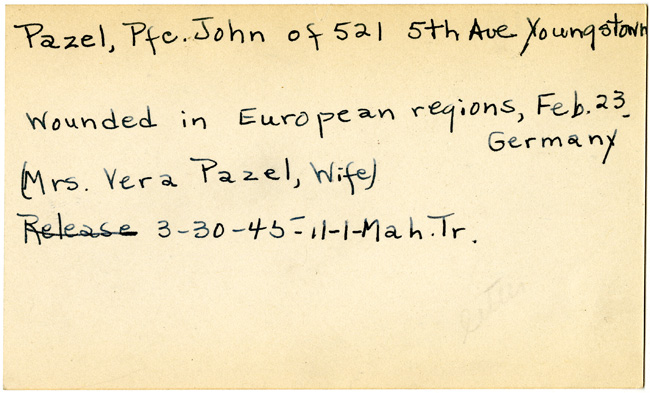 Pazel, Pfc. John of 521 5th Ave Youngstown
Wounded in European regions, Feb. 23.
Germany
(Mrs. Vera Pazel, Wife)
Release 3-30-45-11-1-Mah. Tr.